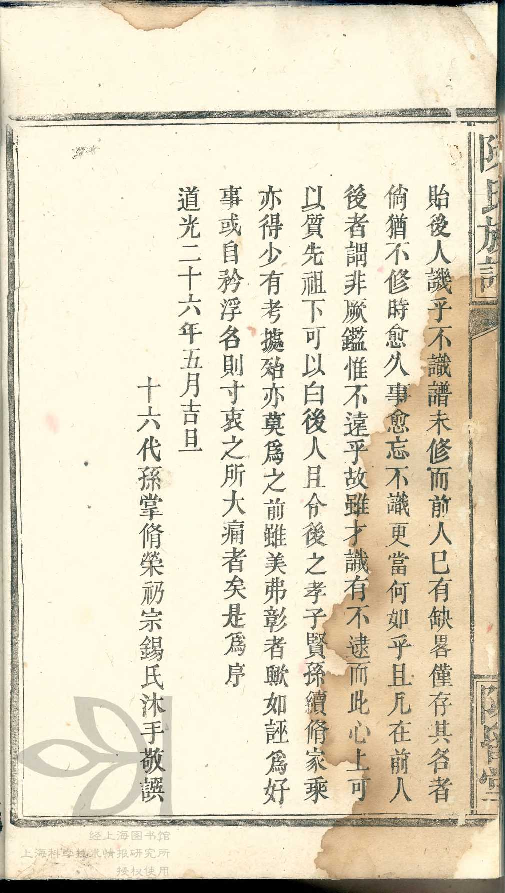 陳氏族譜
貽後人譏乎不識譜未修而前人巳有缺畧僅存其名者
倘猶不修時愈久事愈忘不識更當何如乎且凡在前人
後者謂非厥鑑惟不遠乎故雖才識有不逮而此心上可
以質先祖下可以白後人且令後之孝子賢孫續脩家乘
亦得少有考據殆亦莫爲之前雖美弗彰者歟如誣爲好
事或自矜浮名則寸衷之所大痛者矣是爲序
道光二十六年五月吉旦
十六代孫掌脩榮礽宗錫氏沐手敬譔
經上海图书馆
上海科学技术情报研究所
授权使用